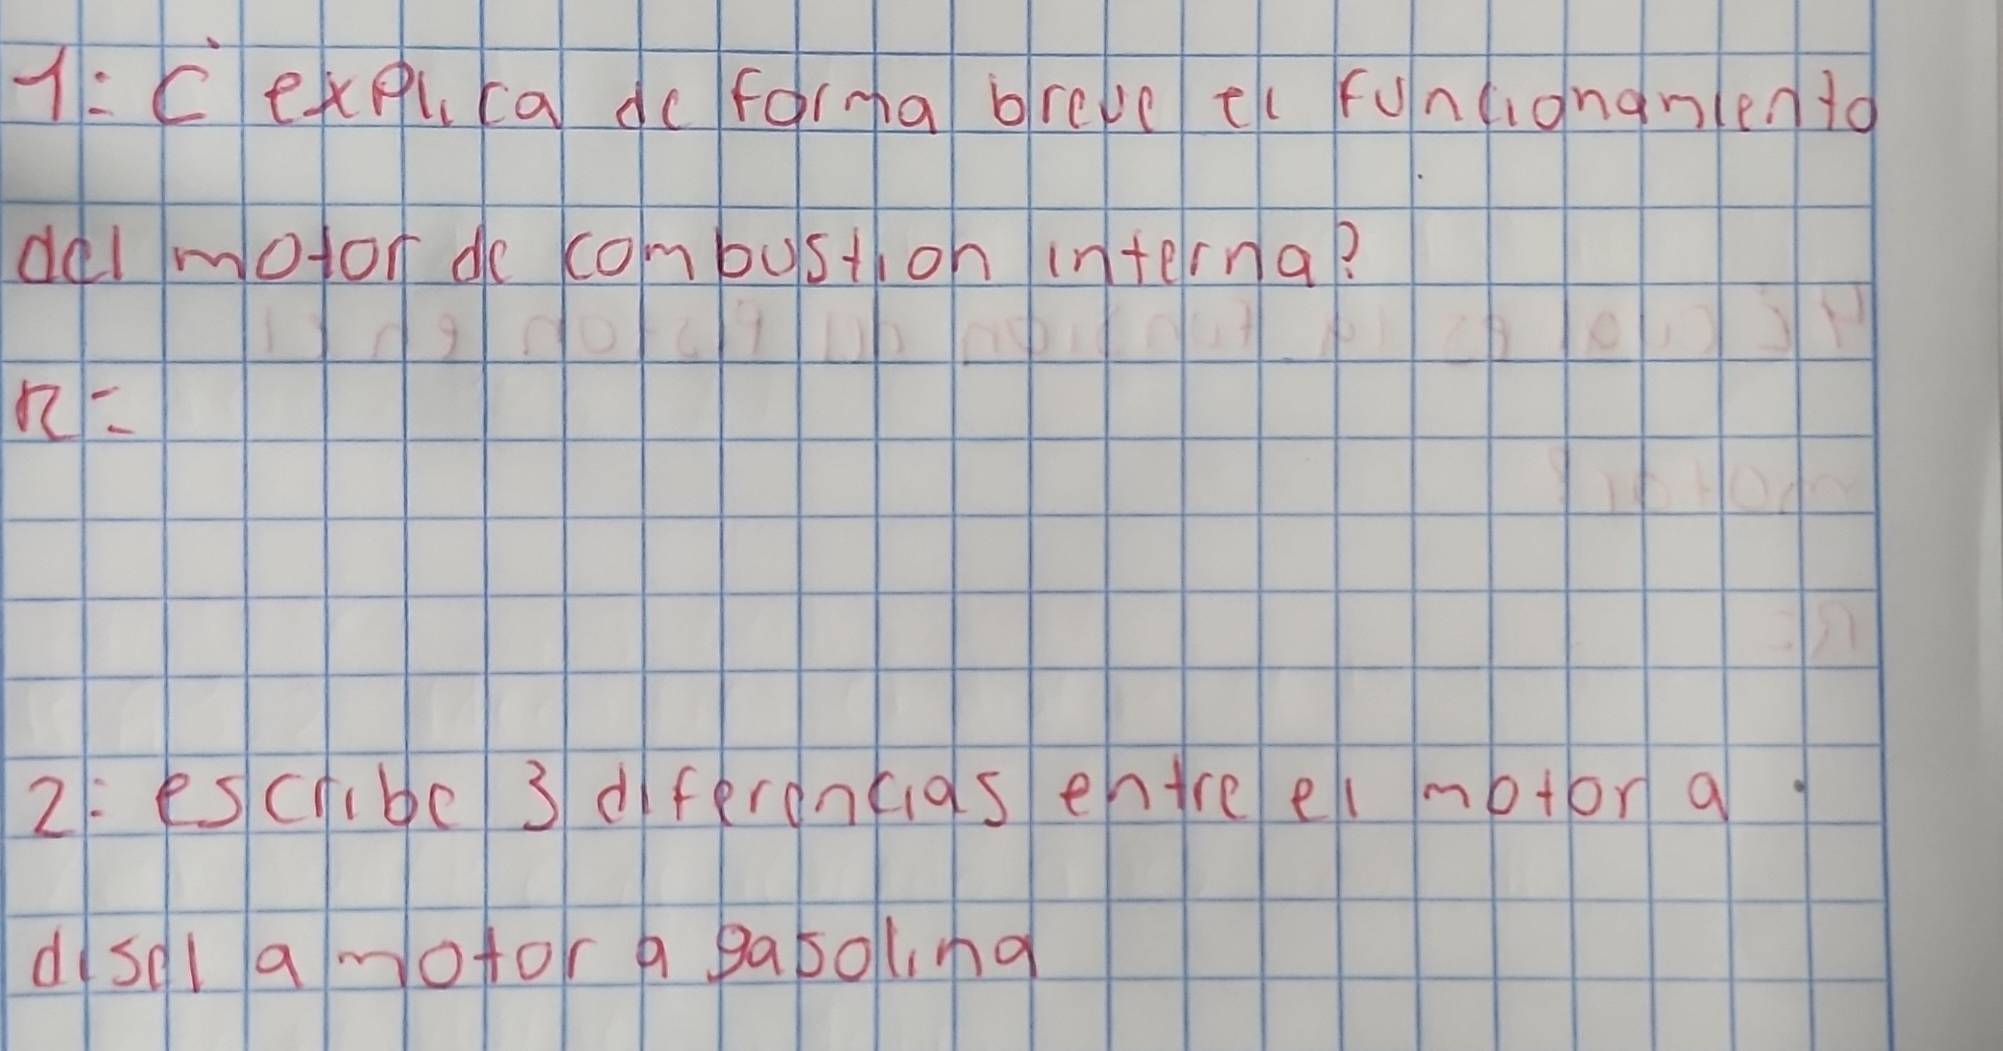 1: ¿ explica de forma breve el funcionamiento
del motor de combustion interna?
R=
2: escribe 3 diferencias entre el motor a
disel a motor a gasolina